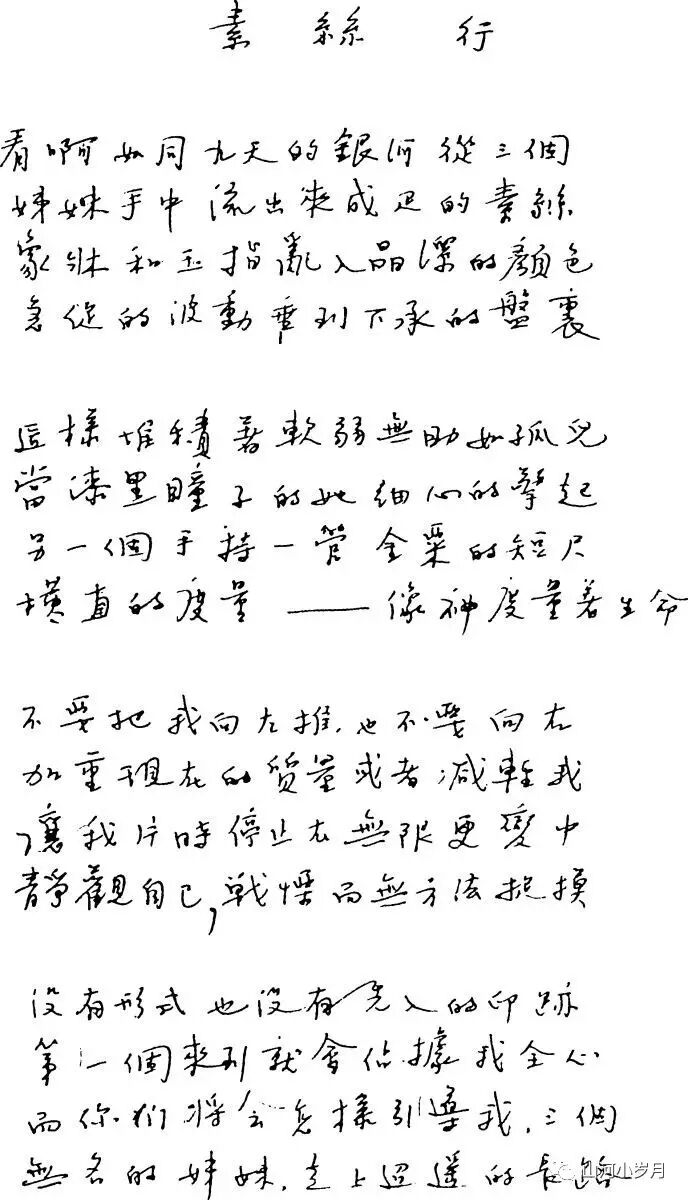 素絲行
看啊如同九天的銀河從三個
姊妹手中流出來成疋的素絲
象牀和玉指亂入晶深的顏色
急促的波動垂到下承的盤裏
這樣堆積著軟弱無助如孤兒
當漆黑瞳子的她細心的擎起
另一個手持一管金粟的短尺
橫直的度量——像神度量著生命
不要把我向左推.也不要向右
加重現在的質量或者減輕我
讓我片時停止在無限更變中
靜觀自己,戰慄而無方法捉摸
沒有形式也沒有先入的印跡
第一個來到就會佔據我全心
而你們將會怎樣引導我.三個
無名的姊妹.走上迢遙的長路
山河小岁月